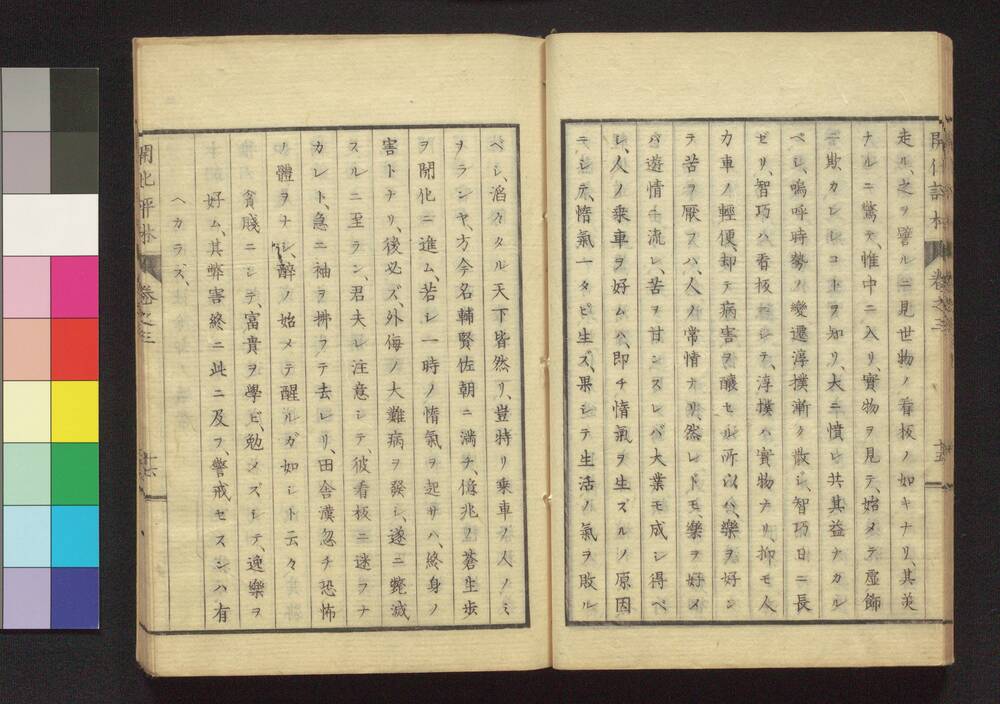 開化評林 卷之三 十五
走ル、之ヲ譬ルニ見世物ノ看板ノ如キナリ、其美
ナルニ驚テ、帷中ニ入リ、實物ヲ見テ、始メテ虚飾
ニ欺カレシコトヲ知リ、大ニ憤レ𪜈其益ナカル
ベシ、嗚呼時勢ノ變遷淳撲漸ク散シ、智巧日ニ長
ゼリ、智巧ハ看板ニシテ、淳撲ハ實物ナリ、抑モ人
力車ノ輕便、却テ病害ヲ釀セル所以ハ、樂ヲ好ン
テ苦ヲ厭フハ、人ノ常情ナリ、然レドモ、樂ヲ好メ
バ遊情チ流レ、苦ヲ甘ンスレバ大業モ成シ得ベ
シ、人ノ乗車ヲ好ムハ、即チ惰氣ヲ生ズルノ原因
ニシテ、惰氣一タビ生ズ、果シテ生活ノ氣ヲ敗ル
ベシ、滔々タル天下皆然リ、豈特リ乗車ノ人ノミ
ヲランヤ、方今名輔賢佐朝ニ満チ、億兆ノ蒼生歩
ヲ開化ニ進ム、若シ一時ノ惰氣ヲ起サハ、終身ノ
害トナリ、後必ズ、外侮ノ大難病ヲ發シ、遂ニ斃滅
スルニ至ラン、君夫レ注意シテ、彼看板ニ迷フナ
カレト、急ニ袖ヲ拂フテ去レリ、田舎漢忽チ恐怖
ノ體ヲナシ、醉ノ始メテ醒ルガ如シト云々
貪賤ニシテ、富貴ヲ學ビ、勉メズシテ、逸樂ヲ
好ム、其弊害終ニ此ニ及フ、警戒セスンハ有
ヘカラズ、
開化評林 卷之三 十六